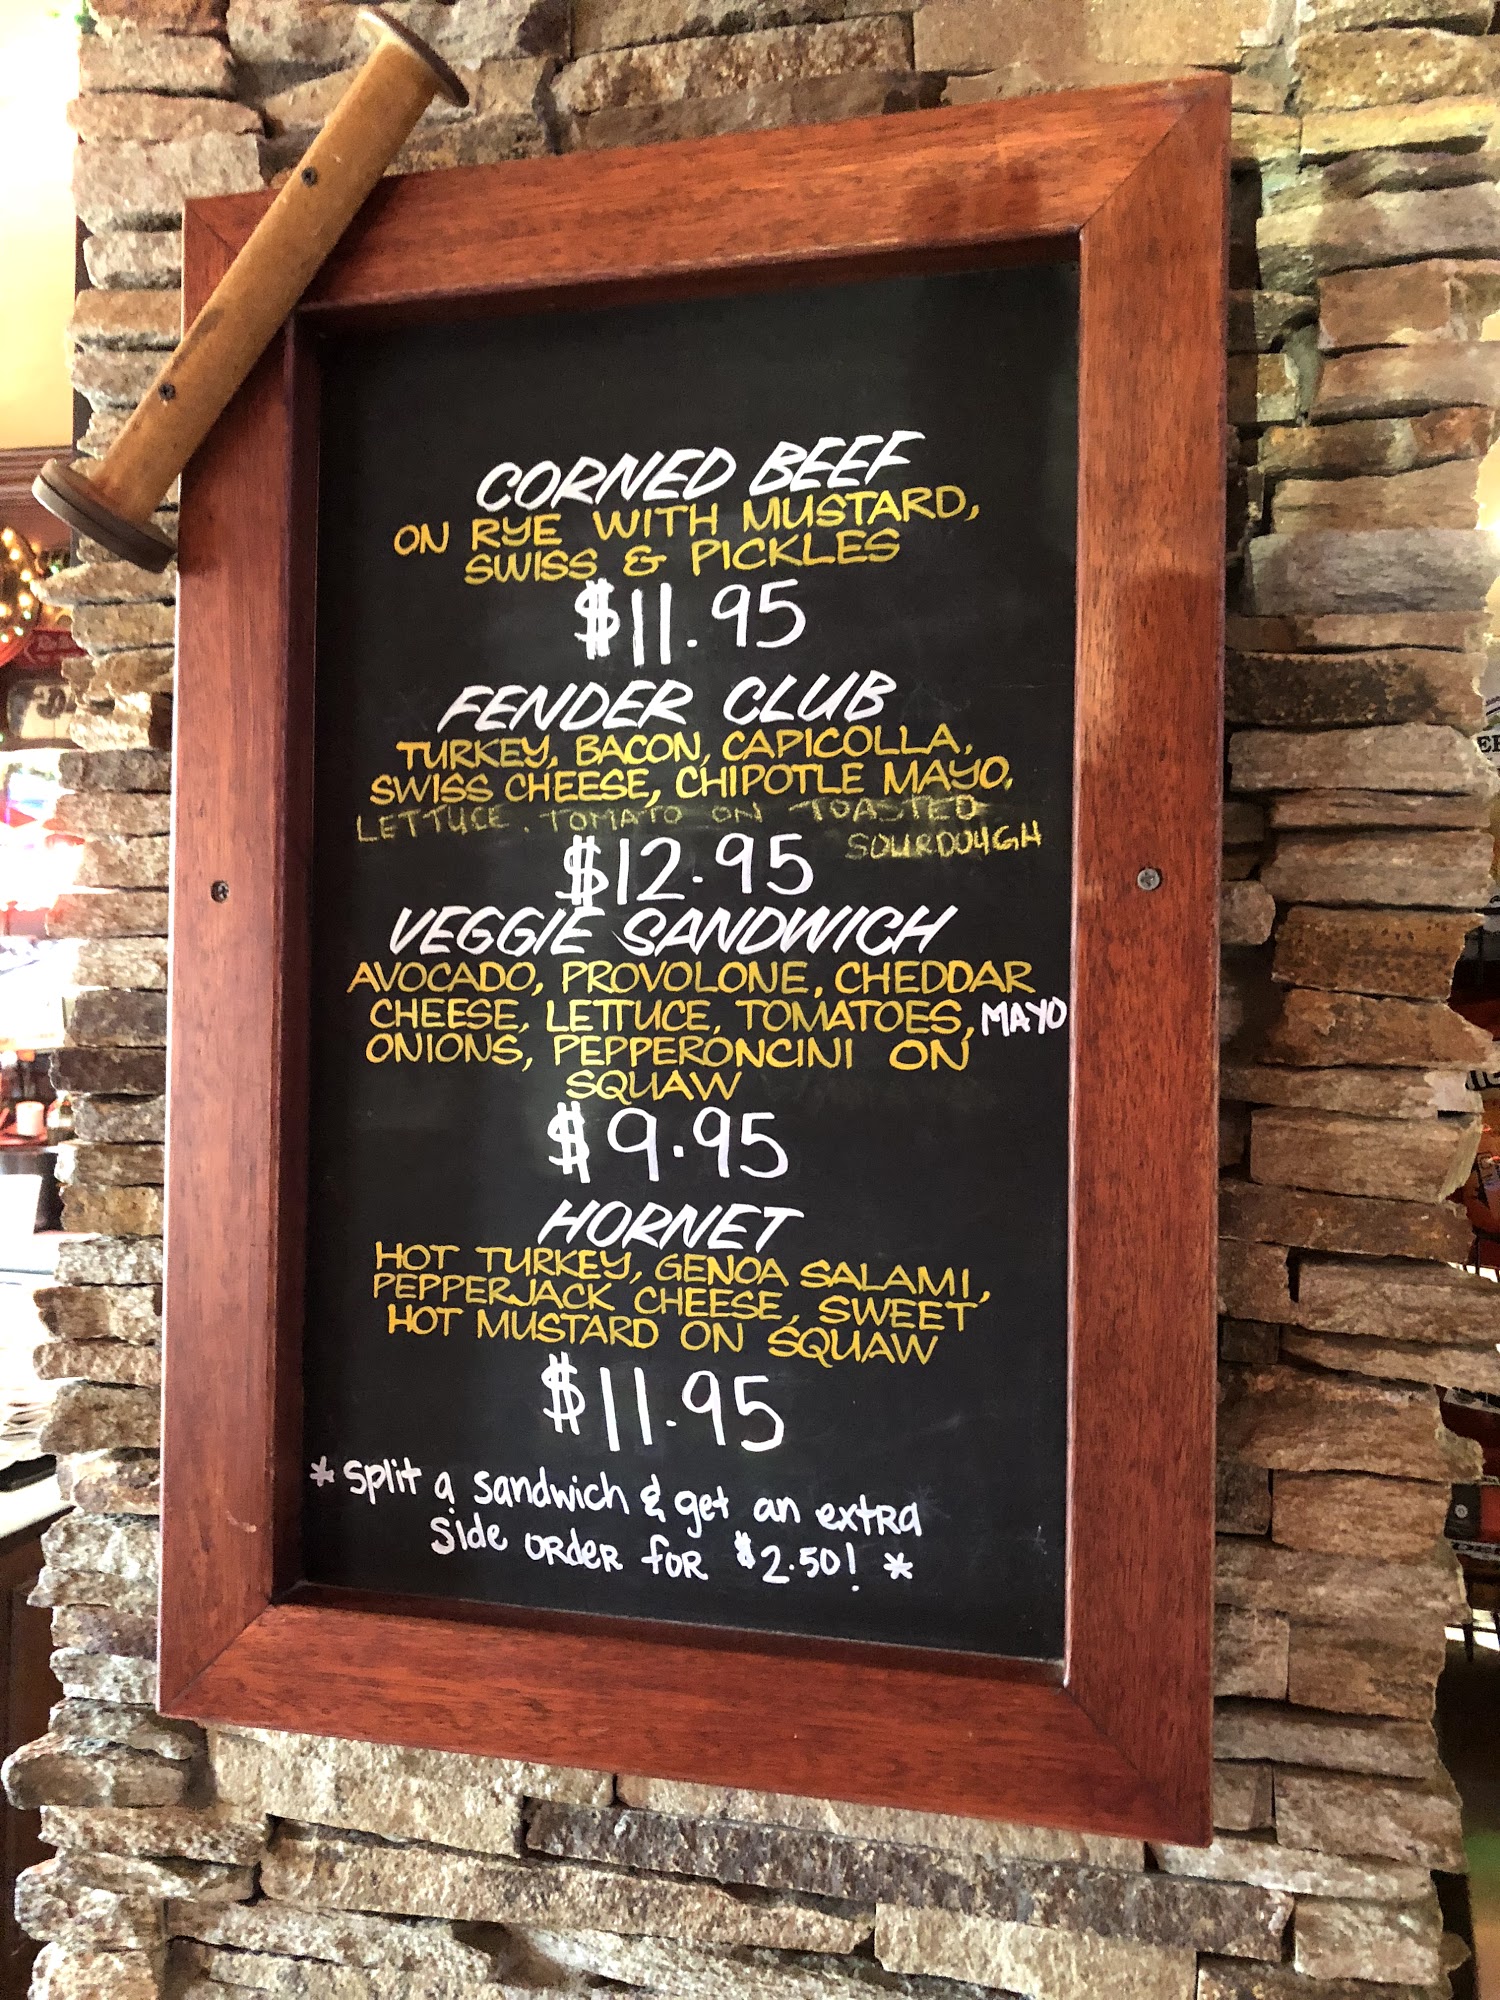 CORNED BEEF
ON RYE WITH MUSTARD,
SWISS & PICKLES
$11.95
FENDER CLUB
TURKEY, BACON, CAPICOLLA,
SWISS CHEESE, CHIPOTLE MAYO,
LETTUCE, TOMATO ON TOASTED
SOURDOUGH
$12.95
VEGGIE SANDWICH
AVOCADO, PROVOLONE, CHEDDAR
CHEESE, LETTUCE, TOMATOES, MAYO
ONIONS, PEPPERONCINI ON
SQUAW
$9.95
HORNET
HOT TURKEY, GENOA SALAMI,
PEPPERJACK CHEESE, SWEET
HOT MUSTARD ON SQUAW
$11.95
* Split a sandwich & get an extra
side order for $2.50! *